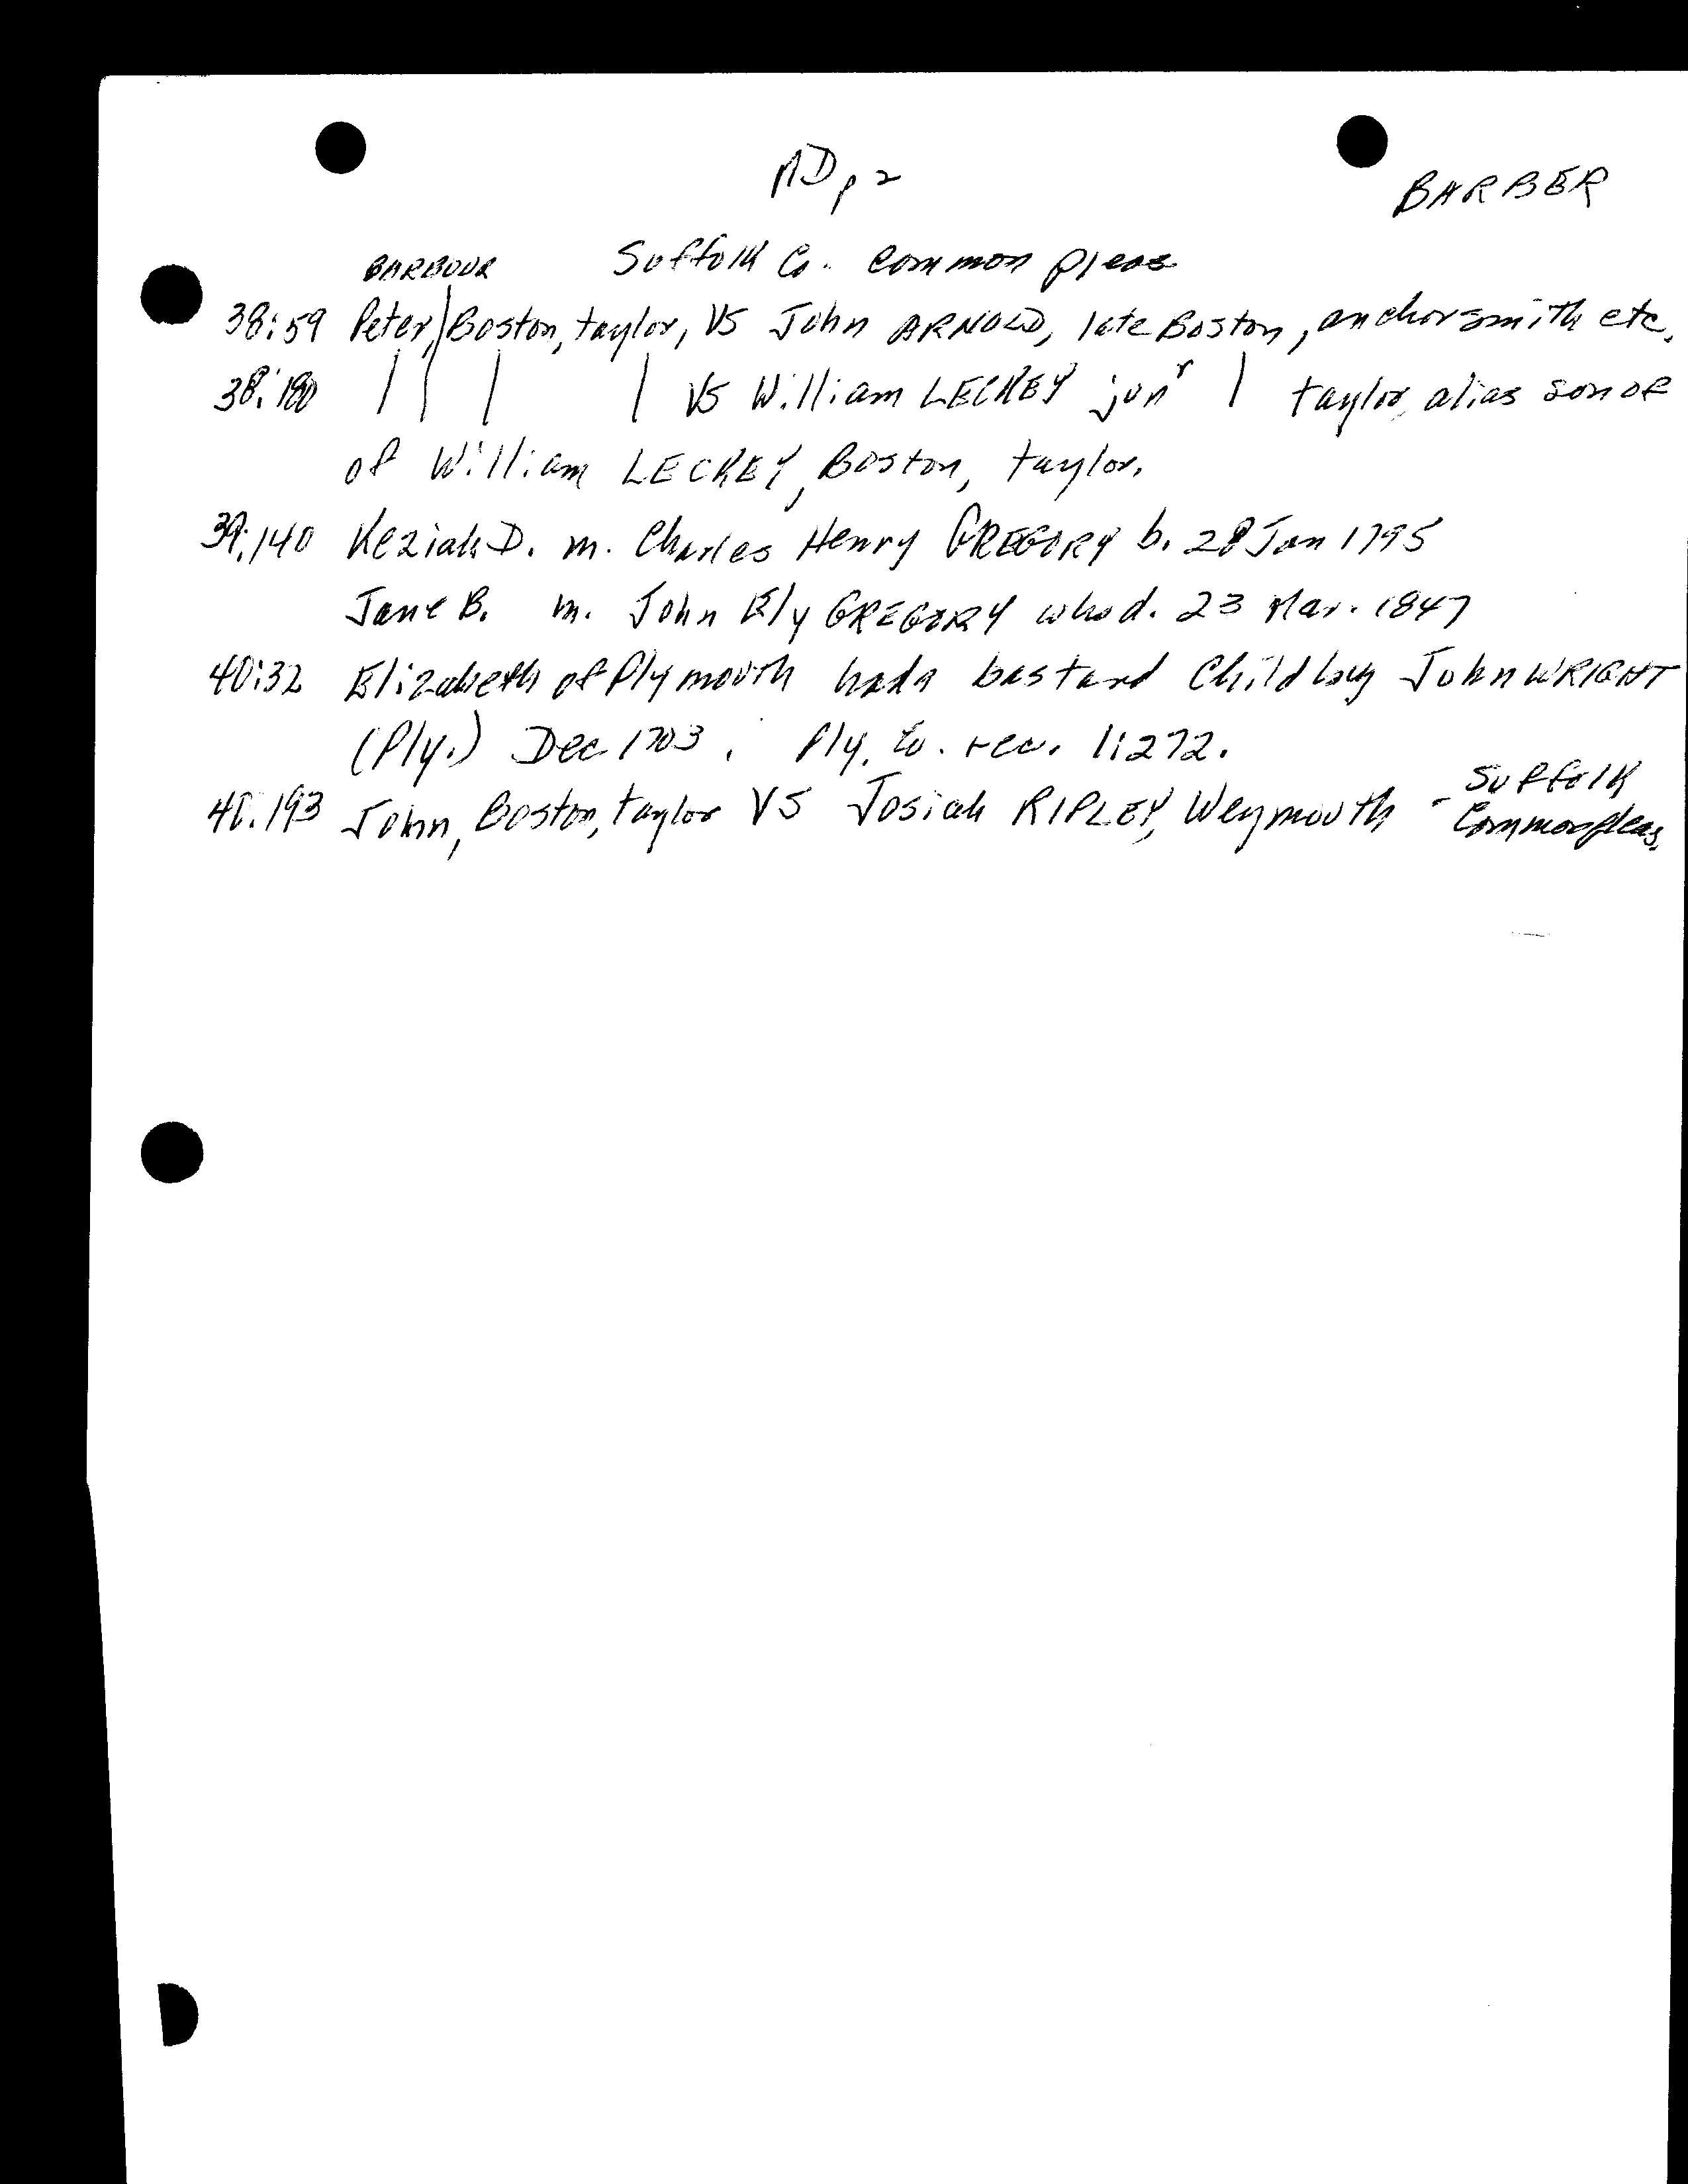 AD p 2
BARBER
BARBOUR Suffolk Co. Common pleas
38:59 Peter, Boston, taylor, VS John ARNOLD, late Boston, anchorsmith etc.
38:180 | | | | VS William LECKEY junr | taylor, alias son of
of William LECKEY, Boston, taylor.
39:140 Keziah D. m. Charles Henry GREGORY b. 28 Jan 1795
Jane B. m. John Ely GREGORY who d. 23 Mar. 1847
40:32 Elizabeth of Plymouth had a bastard Child by John WRIGHT
(Ply.) Dec 1703. Ply. Co. rec. 1:272.
40:193 John, Boston, taylor VS Josiah RIPLEY, Weymouth - Suffolk
Common pleas.